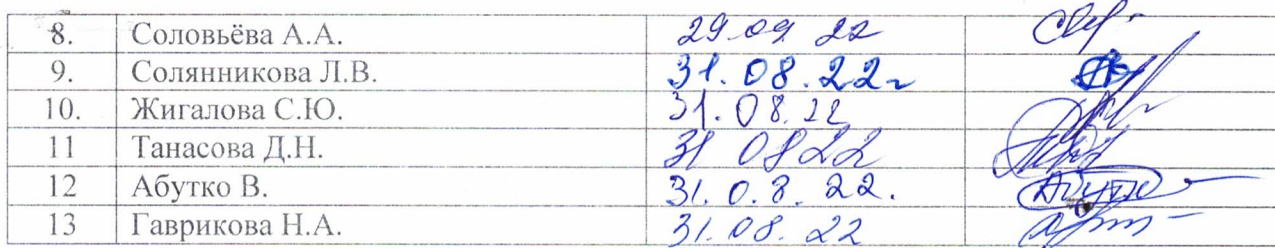 8. Соловьёва А.А. 29.09 22
9. Солянникова Л.В. 31.08.22г
10. Жигалова С.Ю. 31.08.22
11 Танасова Д.Н. 31 08 22
12 Абутко В. 31.0.8.22.
13 Гаврикова Н.А. 31.08.22